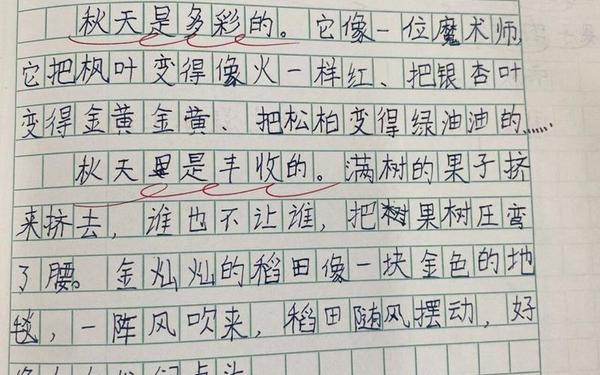 秋天是多彩的。它像一位魔术师,
它把枫叶变得像火一样红、把银杏叶
变得金黄金黄、把松柏变得绿油油的……
秋天是丰收的。满树的果子挤
来挤去，谁也不让谁，把果树压弯
了腰。金灿灿的稻田像一块金色的地
毯，一阵风吹来，稻田随风摆动，好